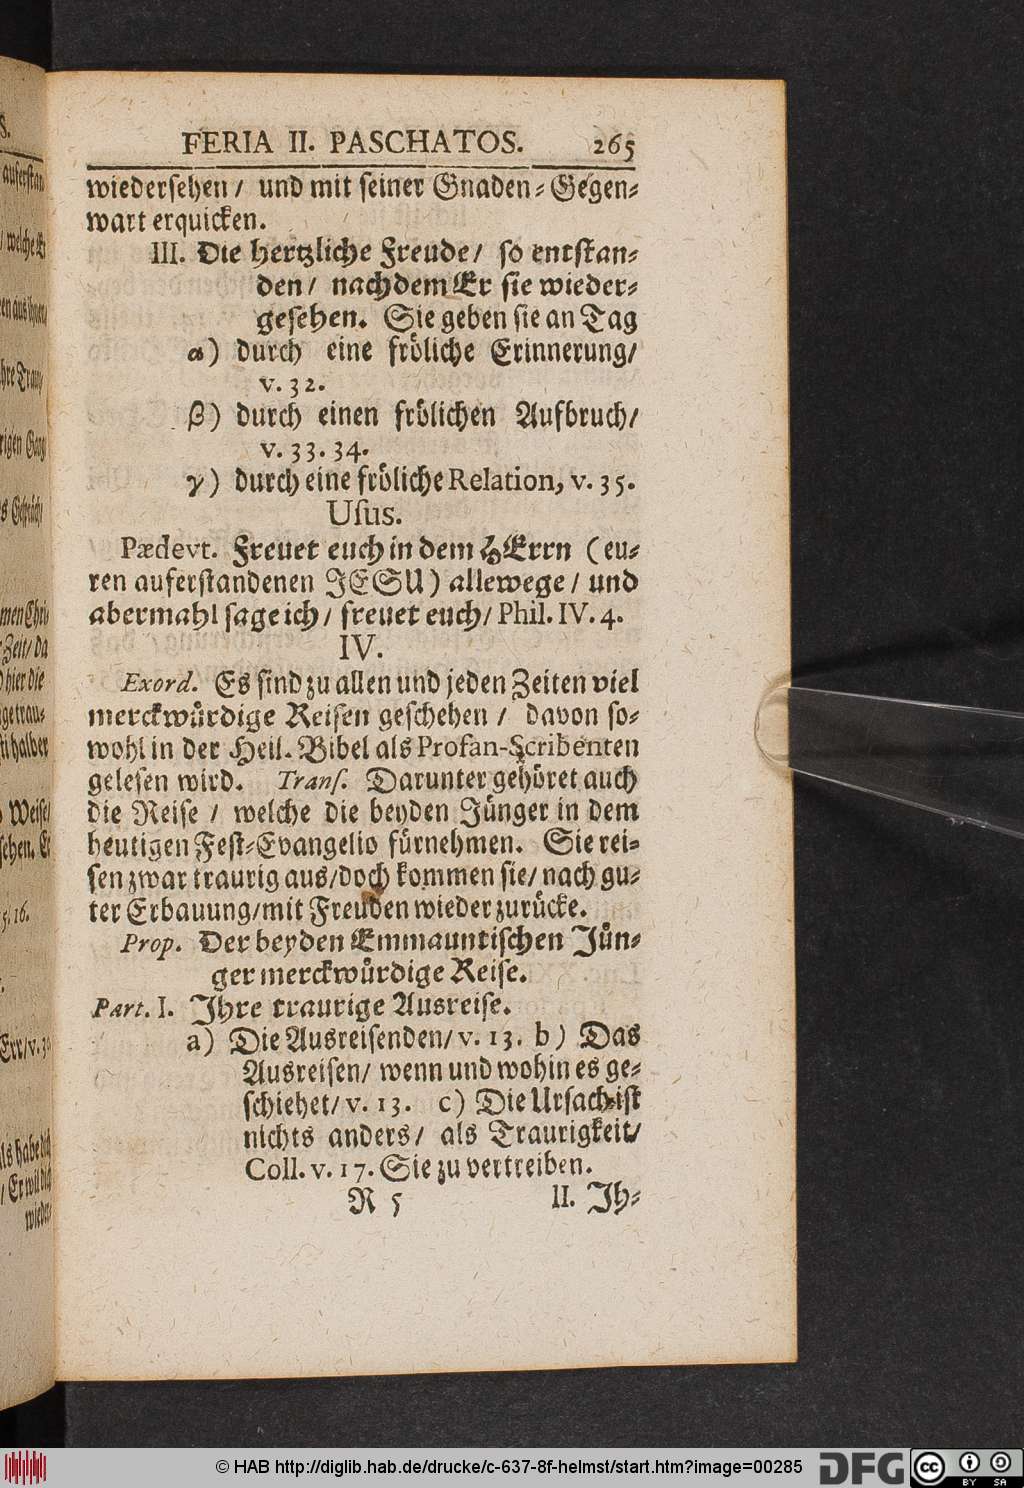 FERIA II. PASCHATOS. 265
wiedersehen / und mit seiner Gnaden-Gegen-
wart erquicken.
III. Die hertzliche Freude / so entstan-
den / nachdem Er sie wieder-
gesehen. Sie geben sie an Tag
α) durch eine fröliche Erinnerung /
v. 32.
β) durch einen frölichen Aufbruch /
v. 33. 34.
γ) durch eine fröliche Relation, v. 35.
Uſus.
Pædevt. Freuet euch in dem HErrn (eu-
ren auferstandenen JESU) allewege / und
abermahl sage ich / freuet euch / Phil. IV. 4.
IV.
Exord. Es sind zu allen und jeden Zeiten viel
merckwürdige Reisen geschehen / davon so-
wohl in der Heil. Bibel als Profan-Scribenten
gelesen wird. Transſ. Darunter gehöret auch
die Reise / welche die beyden Jünger in dem
heutigen Fest-Evangelio fürnehmen. Sie rei-
sen zwar traurig aus / doch kommen sie / nach gu-
ter Erbauung / mit Freuden wieder zurücke.
Prop. Der beyden Emmauntischen Jün-
ger merckwürdige Reise.
Part. I. Ihre traurige Ausreise.
a) Die Ausreisenden / v. 13. b) Das
Ausreisen / wenn und wohin es ge-
schiehet / v. 13. c) Die Ursach ist
nichts anders / als Traurigkeit /
Coll. v. 17. Sie zu vertreiben.
R 5 II. Ih-
© HAB http://diglib.hab.de/drucke/c-637-8f-helmst/start.htm?image=00285
DFG cc BY SA